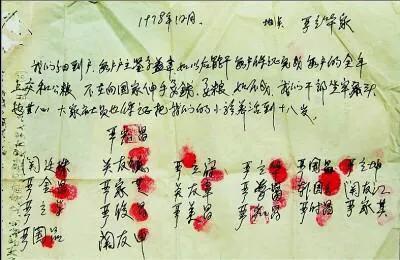 1978年12月. 地点 严立华家
我们分田到户,每户户主签字盖章,如以后能干,每户保证完成每户的全年
上交和公粮,不在向国家伸手要钱要粮。如不成,我们干部坐牢杀头
也甘心,大家社员也保证把我们的小孩养活到十八岁。
严宏昌
关廷珠 关友德 严立付 严立华 严国昌 严立坤
严金昌 严家芝 关友章 严学昌 韩国云 关友江
严立学 严俊昌 严美昌 严宏昌 严付昌 严家其
严国品 关友申